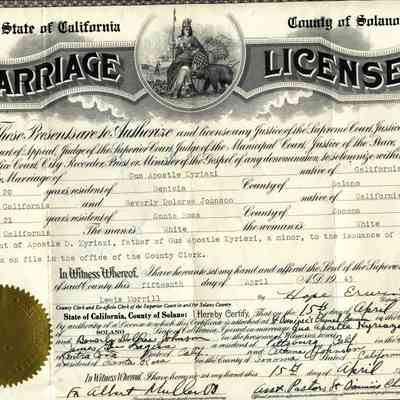 State of California County of Solano
MARRIAGE LICENSE
These Presents are to Authorize and license any Justice of the Supreme Court, Justice
Court of Appeal, Judge of the Superior Court, Judge of the Municipal Court, Justice of the Peace,
Police Court, City Recorder, Priest or Minister of the Gospel of any denomination, to solemnize within
Marriage of Gus Apostle Kyriazi native of California
20 years, resident of Benicia County of Solano
and Beverly Dolores Johnson native of California
21 years, resident of Santa Rosa County of Sonoma
California The man is White the woman is White
nt of Apostle D. Kyriazi, father of Gus Apostle Kyriazi, a minor, to the issuance of
is on file in the office of the County Clerk.
In Witness Whereof, I have hereunto set my hand and affixed the Seal of the Superior
of said County this fifteenth day of April A.D. 19 43
Lewis Morrill By Hope
County Clerk and Ex-officio Clerk of the Superior Court in and for Solano County.
State of California, County of Solano: I Hereby Certify, That on the 15th day of April
by authority of a License
SOLANO State of California, I Gus Apostle Kyriazi
and Beverly Dolores Johnson in the presence of
James Pittsburg Calif
Santa Rosa Calif and Johnson
County of Sonoma State of California
In Witness Whereof, I have hereunto set my hand this 15th day of April
Fr Albert Muller OP Asst. Pastor, St Dominic's